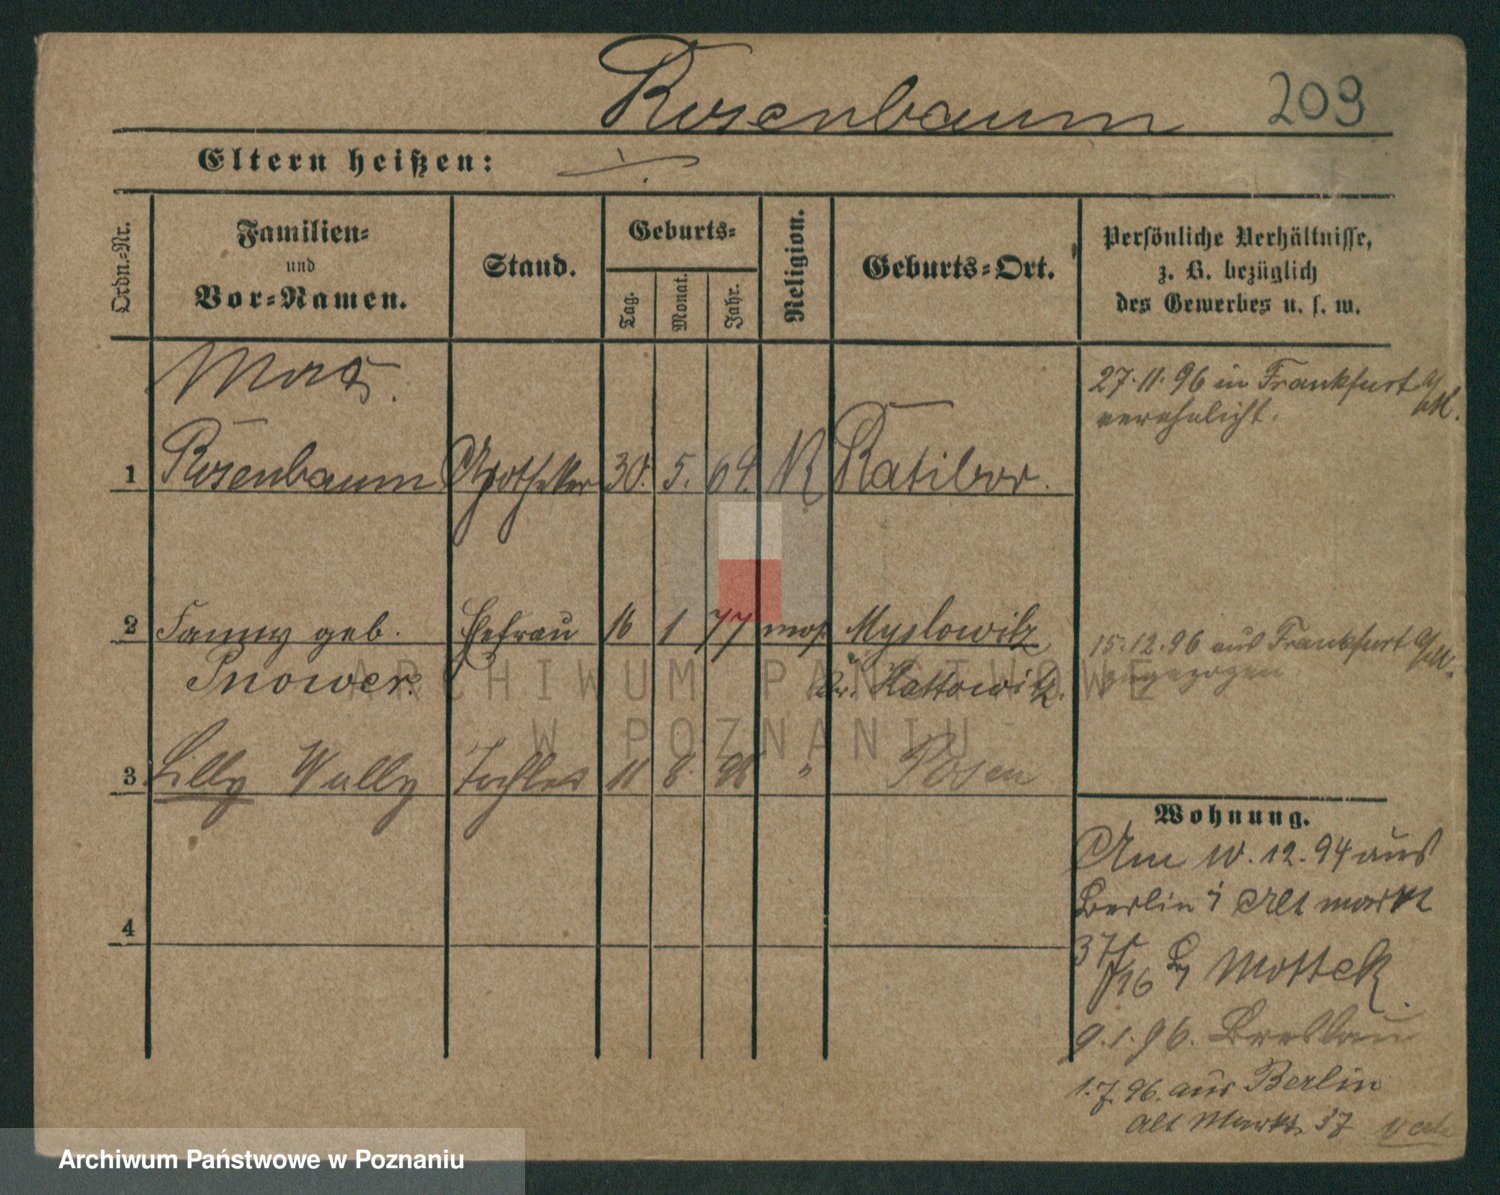 Rosenbaum 209
Eltern heißen: ./.
Ordn.-Nr.
Familien-
und
Vor-Namen.
Stand.
Geburts-
Tag.
Monat.
Jahr.
Religion.
Geburts-Ort.
Persönliche Verhältnisse,
z. B. bezüglich
des Gewerbes u. s. w.
Max
1 Rosenbaum Apotheker 30. 5. 64. Ratibor.
27.11.96 in Frankfurt a/M.
verehelicht.
2 Fanny geb. Ehefrau 16 1 77 mos. Myslowitz
Inower. Kr. Kattowitz.
15.12.96 aus Frankfurt a/M.
zugezogen
3 Lilly Wally Tochter 11 8. 98 " Posen
4
Wohnung.
Am 10.12.94 aus
Berlin Alt markt
37 Mottek.
9.1.96. Breslau
1.7.96. aus Berlin
Alt Markt 37
ARCHIWUM PAŃSTWOWE
W POZNANIU
Archiwum Państwowe w Poznaniu